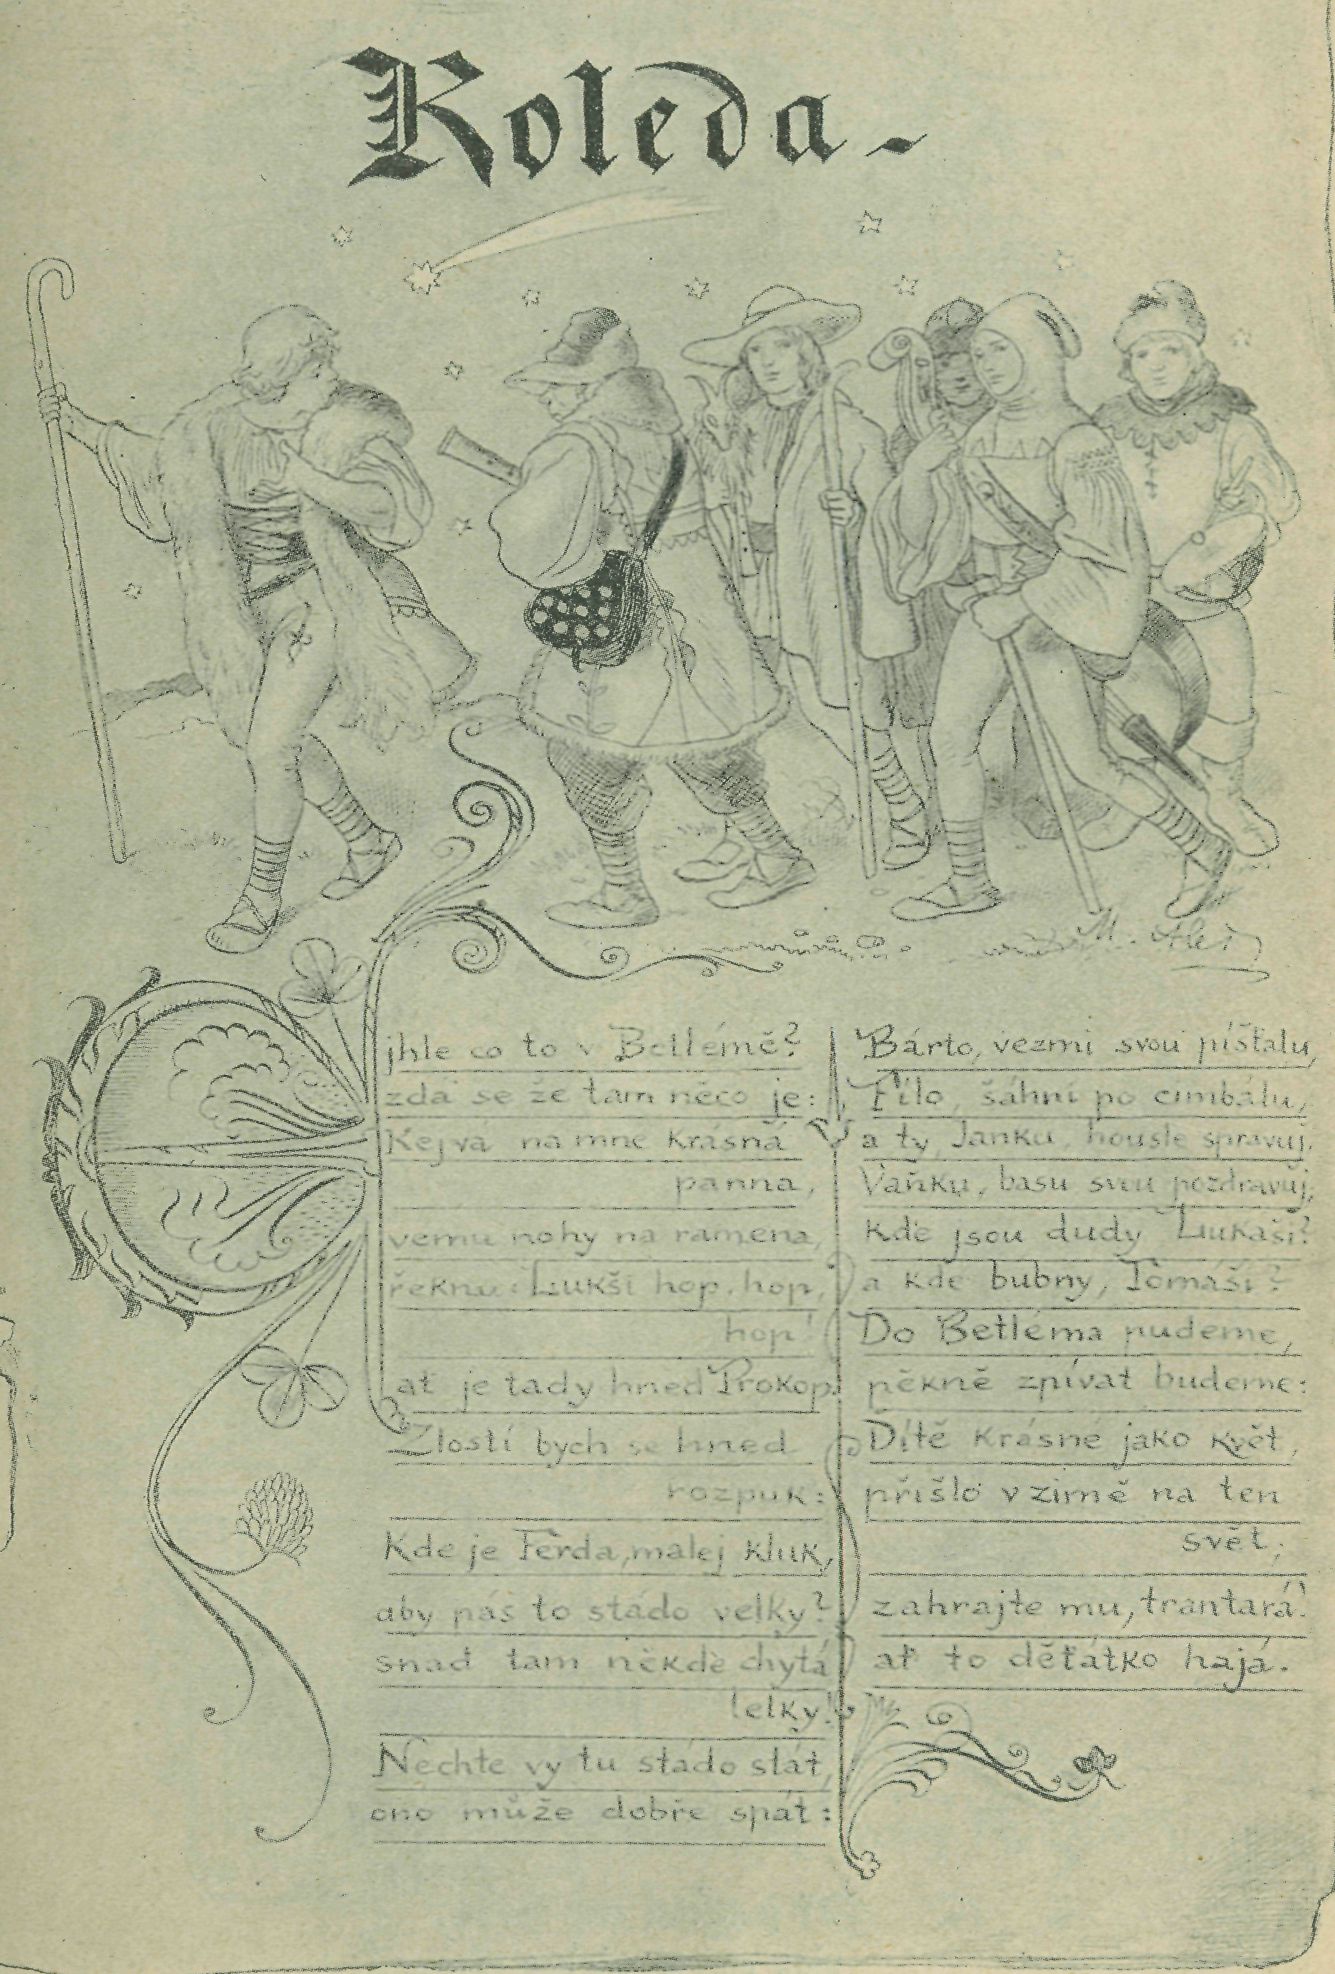 Koleda.
M. Aleš
Ejhle co to v Betlémě?
zdá se že tam něco je:
Kejvá na mne krásná
panna,
vemu nohy na ramena,
řeknu Lukši hop, hop,
hop!
ať je tady hned Prokop.
Zlostí bych se hned
rozpuk:
Kde je Ferda, malej kluk,
aby pás to stádo velky?
snad tam někde chytá
lelky!
Nechte vy tu stádo stát,
ono může dobře spát:
Bárto, vezmi svou píšťalu,
Filo, šáhni po cimbálu,
a ty, Janku, housle spravuj,
Vaňku, basu svou pozdravuj,
kde jsou dudy Lukáši?
a kde bubny, Tomáši?
Do Betléma pudeme,
pěkně zpívat budeme:
Dítě krásné jako květ,
přišlo v zimě na ten
svět;
zahrajte mu, trantará!
ať to děťátko hajá.